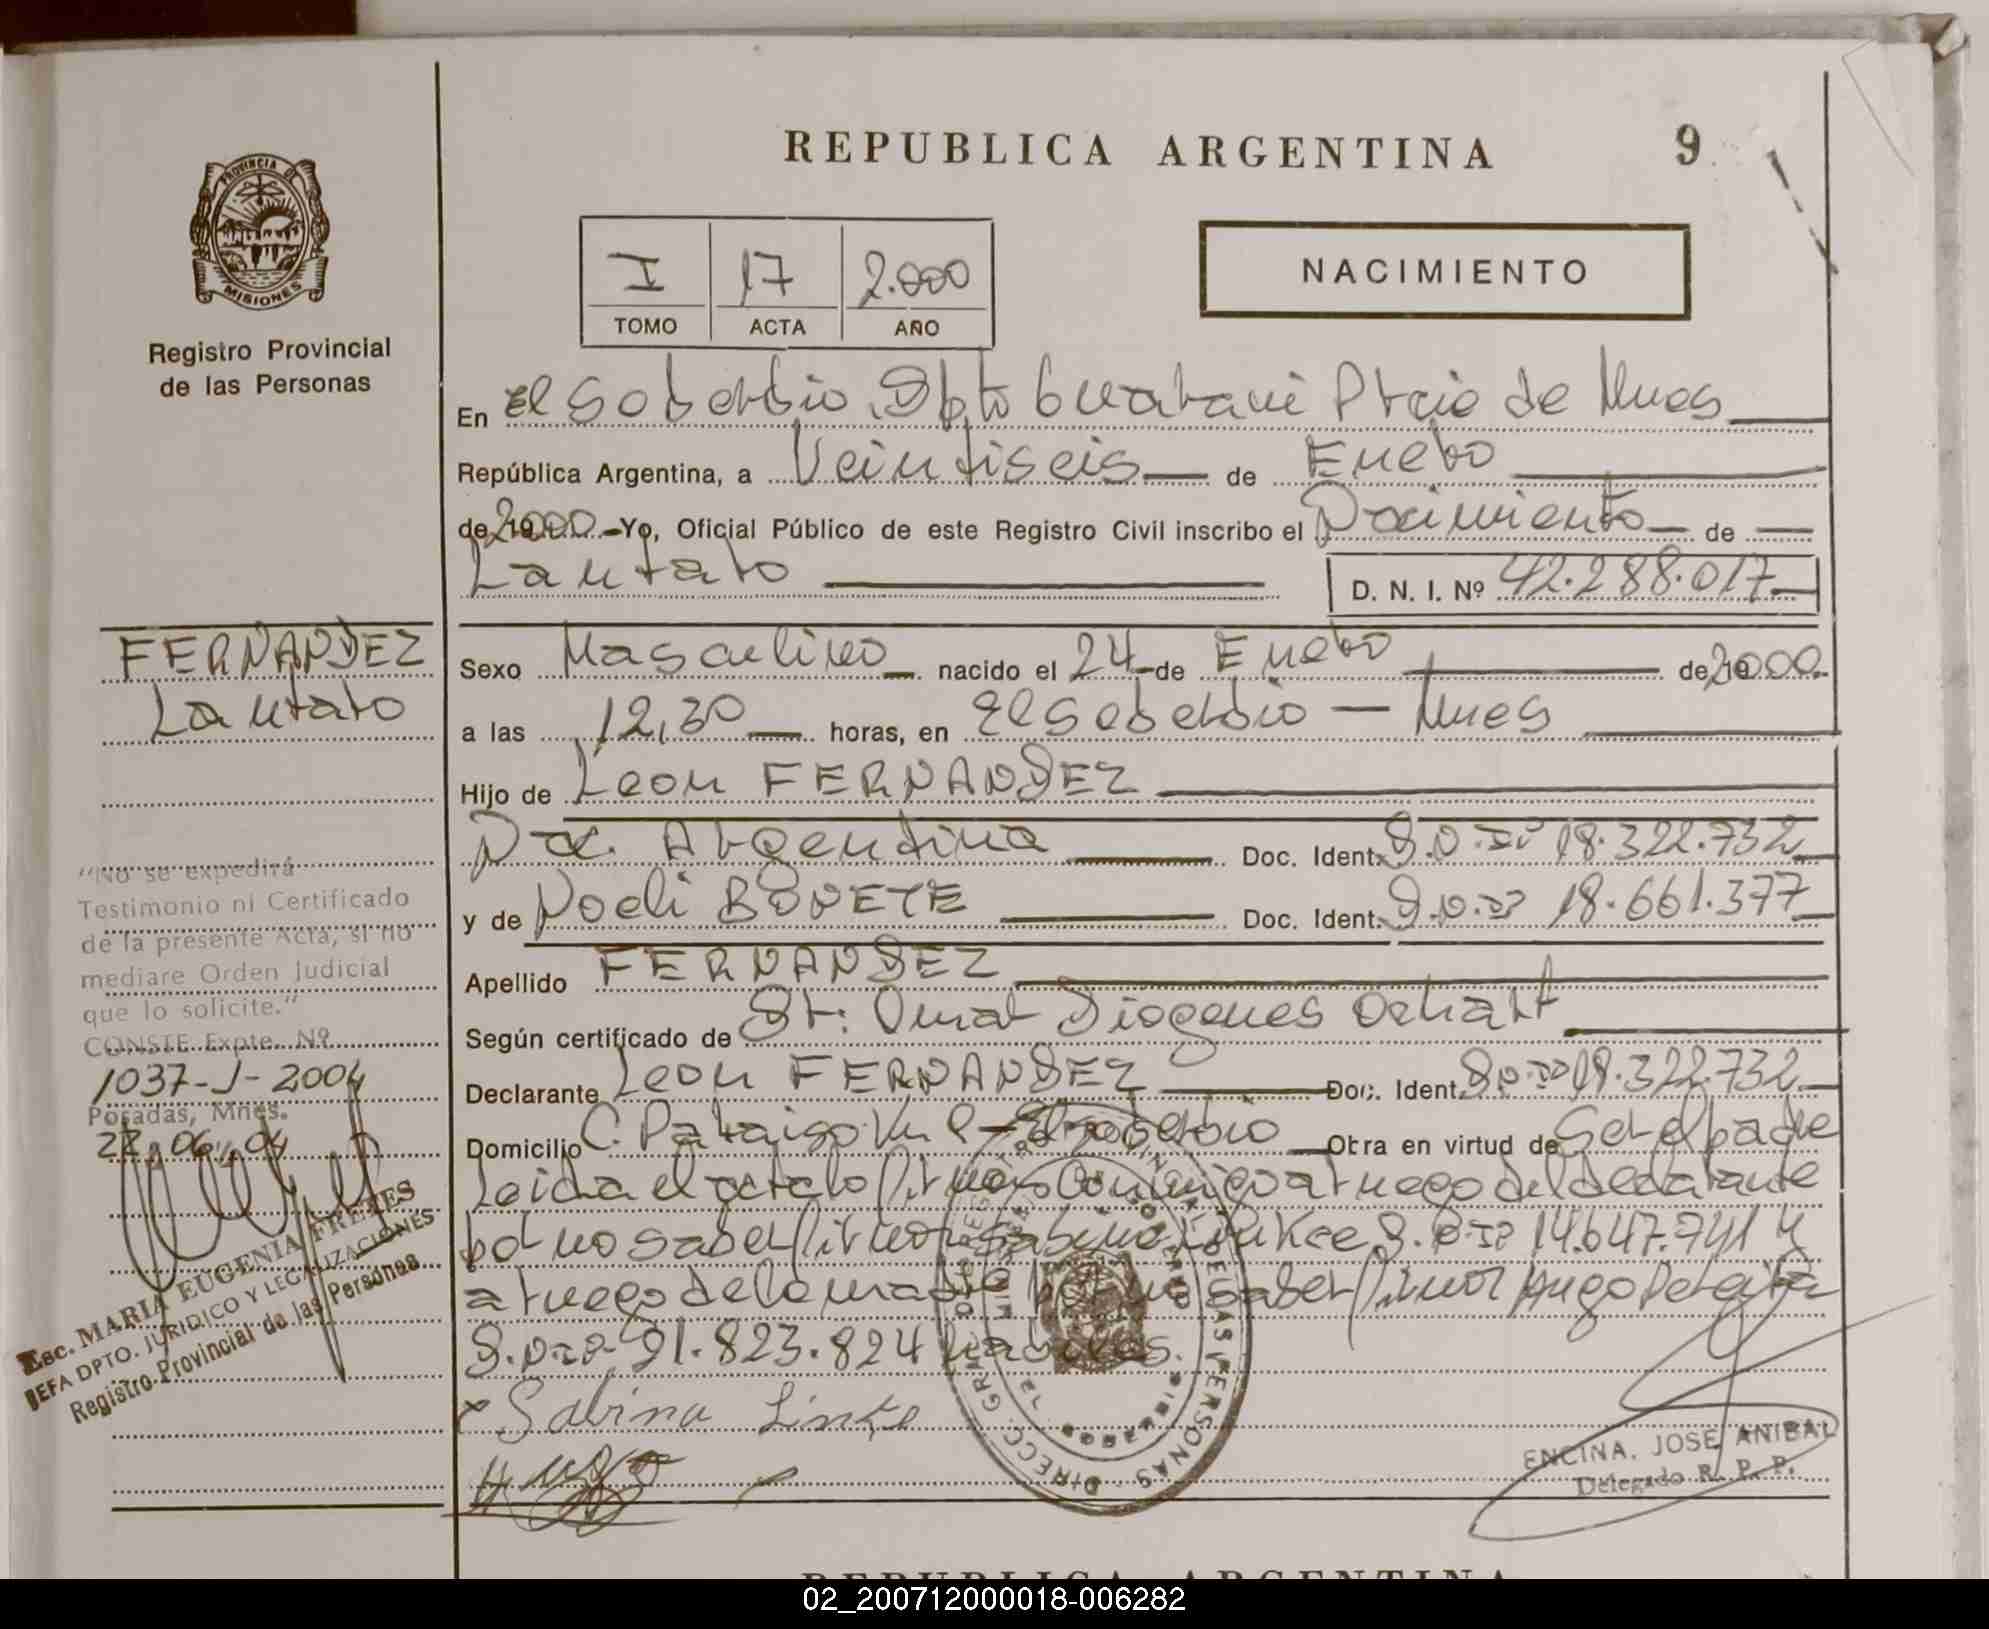 REPUBLICA ARGENTINA
9
PROVINCIA DE
MISIONES
Registro Provincial
de las Personas
I 17 2.000
TOMO ACTA AÑO
NACIMIENTO
En El Soberbio, Dpto Guarani Pcia de Mnes
República Argentina, a Veintiseis de Enero
de 2000 Yo, Oficial Público de este Registro Civil inscribo el Nacimiento de
Lautaro D. N. I. Nº 42.288.017
FERNANDEZ
Lautaro
Sexo Masculino nacido el 24 de Enero de 2000
a las 12,30 horas, en El Soberbio - Mnes
Hijo de Leon FERNANDEZ
Nac. Argentina Doc. Ident. D.N.I. 18.322.732
y de Noeli BONETE Doc. Ident. D.N.I. 18.661.377
Apellido FERNANDEZ
Según certificado de Dr: Omar Diogenes
Declarante Leon FERNANDEZ Doc. Ident. D.N.I. 18.322.732
Domicilio C. Paraiso Km 8 - El Soberbio Obra en virtud de Ser el padre
Leida el acta lo firman Conmigo a ruego del declarante
por no saber firmar Sabina Linke D.N.I. 14.647.741 y
a ruego de la madre por no saber firmar Hugo Pereira
D.N.I. 91.823.824 habiles.
Sabina Linke
Hugo
"No se expedirá
Testimonio ni Certificado
de la presente Acta, si no
mediare Orden Judicial
que lo solicite."
CONSTE Expte. Nº
1037-J-2004
Posadas, Mnes.
22, 06, 04
Esc. MARIA EUGENIA FRETES
JEFA DPTO. JURIDICO Y LEGALIZACIONES
Registro Provincial de las Personas
ENCINA, JOSE ANIBAL
Delegado R. P. P.
REPUBLICA ARGENTINA
02_200712000018-006282